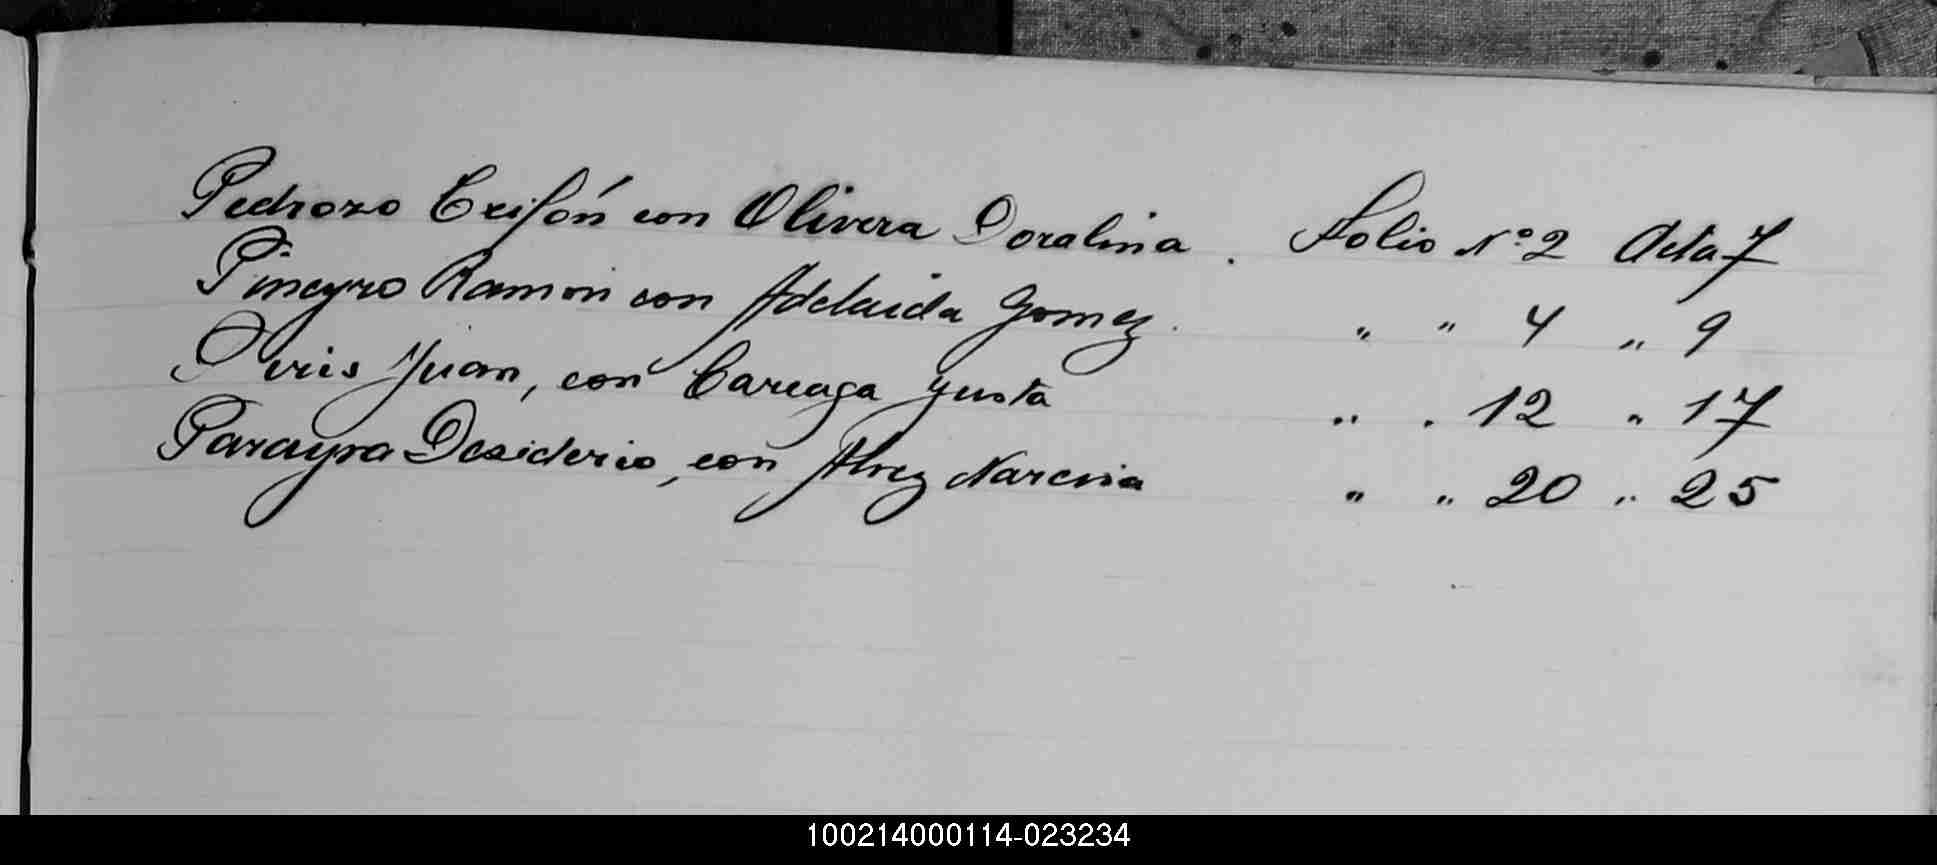 Pedrozo Trifón con Olivera Doralina. Folio Nº 2 Acta 7
Piñeyro Ramon con Adelaida Gomez. " " 4 " 9
Piris Juan, con Careaga Justa " " 12 " 17
Parayra Desiderio, con Alvez Narcisa " " 20 " 25
100214000114-023234